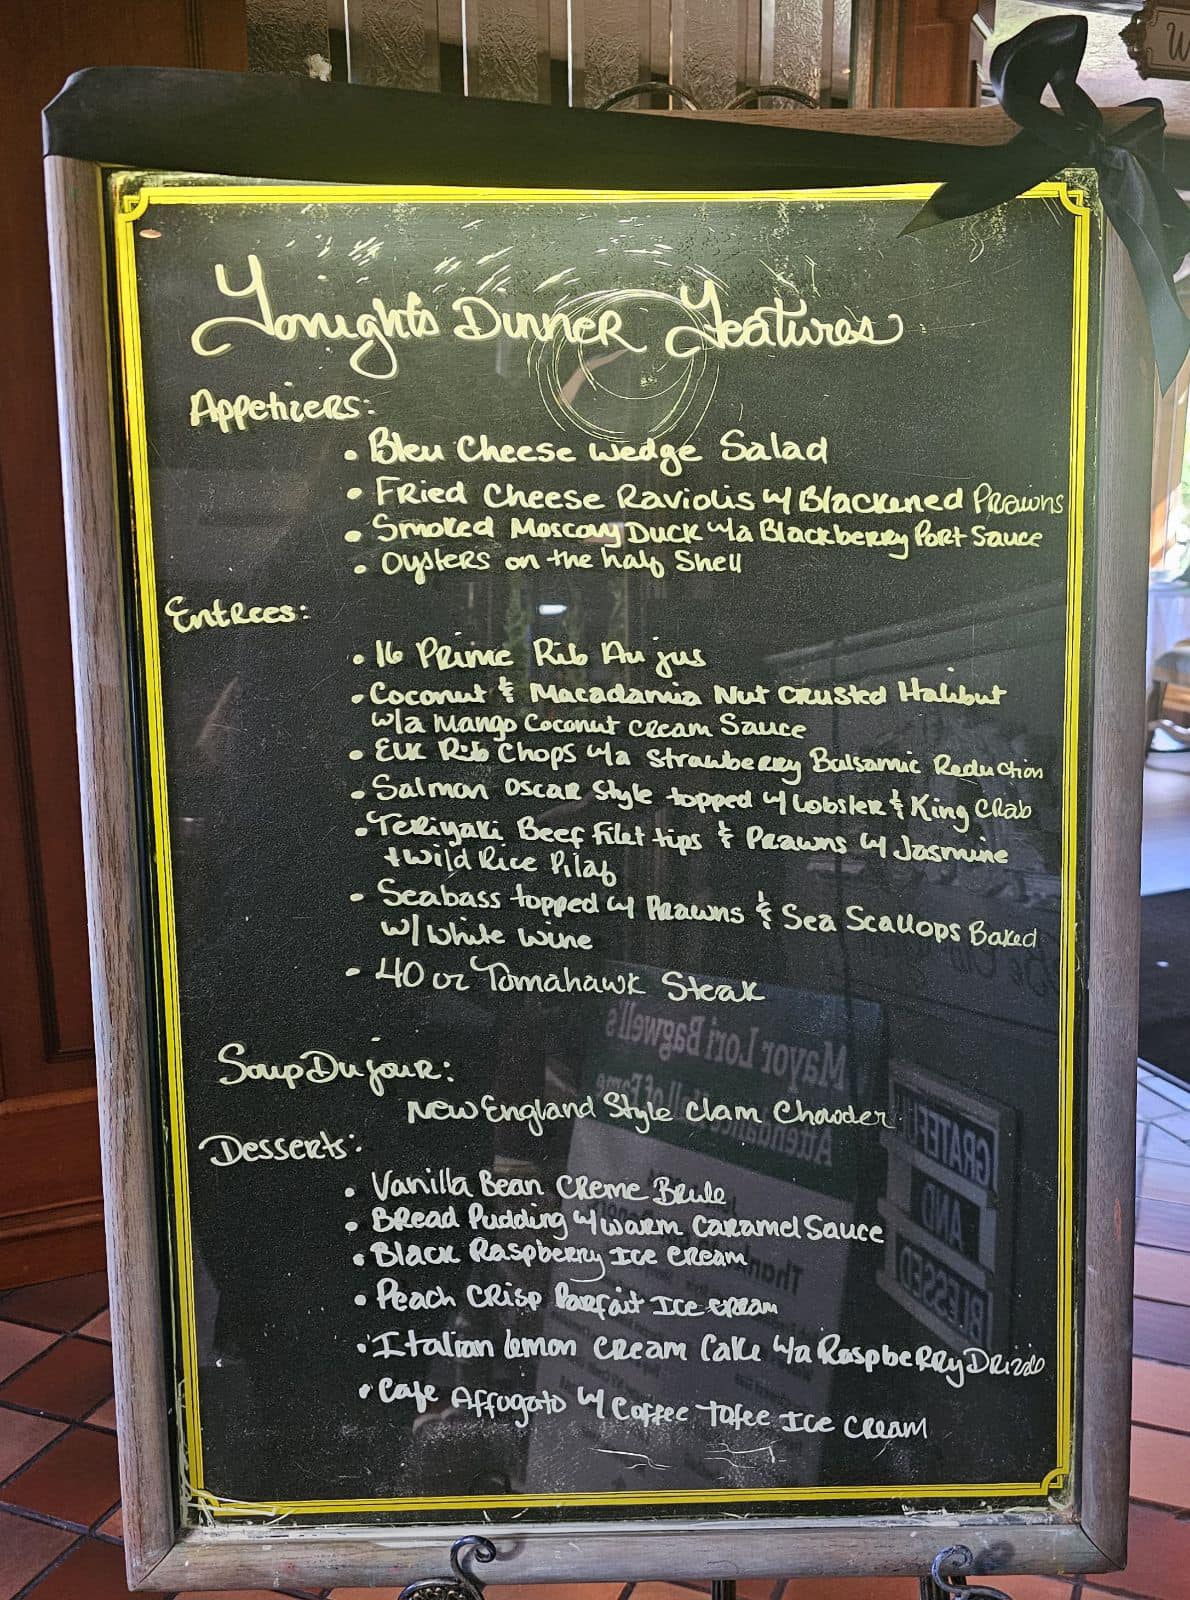 Tonight's Dinner Features
Appetizers:
• Bleu Cheese Wedge Salad
• Fried Cheese Raviolis w/ Blackened Prawns
• Smoked Moscovy Duck w/a Blackberry Port Sauce
• Oysters on the half Shell
Entrees:
• 16 Prime Rib Au jus
• Coconut & Macadamia Nut Crusted Halibut
w/a Mango Coconut Cream Sauce
• Elk Rib Chops w/a Strawberry Balsamic Reduction
• Salmon Oscar Style topped w/ Lobster & King Crab
• Teriyaki Beef Filet tips & Prawns w/ Jasmine
+ Wild Rice Pilaf
• Seabass topped w/ Prawns & Sea Scallops Baked
w/ White Wine
• 40 oz Tomahawk Steak
Soup Du jour:
New England Style Clam Chowder
Desserts:
• Vanilla Bean Creme Brule
• Bread Pudding w/ warm Caramel Sauce
• Black Raspberry Ice Cream
• Peach Crisp Parfait Ice Cream
• Italian lemon Cream Cake w/a Raspberry Drizzle
• Cafe Affogato w/ Coffee Tofee Ice Cream
Mayor Lori Bagwell's
Attendance
GRATEFUL
AND
BLESSED